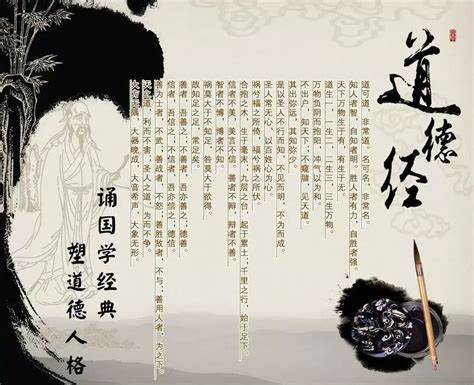 道德经
道可道，非常道。名可名，非常名。
知人者智，自知者明。胜人者有力，自胜者强。
天下万物生于有，有生于无。
道生一，一生二，二生三，三生万物。
万物负阴而抱阳，冲气以为和。
不出户，知天下；不窥牖，见天道。
其出弥远，其知弥少。
是以圣人不行而知，不见而明，不为而成。
圣人常无心，以百姓心为心。
祸兮福之所倚，福兮祸之所伏。
合抱之木，生于毫末；九层之台，起于累土；千里之行，始于足下。
信者不美，美言不信。善者不辩，辩者不善。
智者不博，博者不知。
祸莫大于不知足，咎莫大于欲得。
故知足之足，常足矣。
善者，吾善之；不善者，吾亦善之；德善。
信者，吾信之；不信者，吾亦信之；德信。
善为士者，不武；善战者，不怒；善胜敌者，不与；善用人者，为之下。
天之道，利而不害；圣人之道，为而不争。
大方无隅，大器晚成，大音希声，大象无形。
诵国学经典
塑道德人格